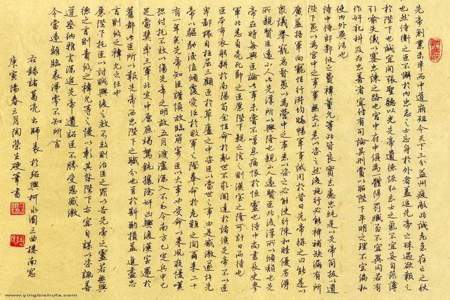 先帝創業未半而中道崩殂今天下三分益州疲敝此誠危急存亡之秋
也然侍衛之臣不懈於內忠志之士忘身於外者蓋追先帝之殊遇欲報之
於陛下也誠宜開張聖聽以光先帝遺德恢弘志士之氣不宜妄自菲薄
引喻失義以塞忠諫之路也宮中府中俱為一體陟罰臧否不宜異同若有
作奸犯科及為忠善者宜付有司論其刑賞以昭陛下平明之理不宜偏私
使內外異法也
侍中侍郎郭攸之費禕董允等此皆良實志慮忠純是以先帝簡拔以遺
陛下愚以為宮中之事事無大小悉以咨之然後施行必能裨補闕漏有所
廣益將軍向寵性行淑均曉暢軍事試用於昔日先帝稱之曰能是以
眾議舉寵為督愚以為營中之事悉以咨之必能使行陣和睦優劣得
所親賢臣遠小人此先漢所以興隆也親小人遠賢臣此後漢所以傾頹也先
帝在時每與臣論此事未嘗不歎息痛恨於桓靈也侍中尚書長史參
軍此悉貞良死節之臣願陛下親之信之則漢室之隆可計日而待也
臣本布衣躬耕於南陽苟全性命於亂世不求聞達於諸侯先帝不以臣
卑鄙猥自枉屈三顧臣於草廬之中咨臣以當世之事由是感激遂許先
帝以驅馳後值傾覆受任於敗軍之際奉命於危難之間爾來二十
有一年矣先帝知臣謹慎故臨崩寄臣以大事也受命以來夙夜憂歎
恐付託不效以傷先帝之明故五月渡瀘深入不毛今南方已定兵甲已
足當獎率三軍北定中原庶竭駑鈍攘除奸凶興復漢室還於
舊都此臣所以報先帝而忠陛下之職分也至於斟酌損益進盡忠
言則攸之禕允之任也
願陛下託臣以討賊興復之效不效則治臣之罪以告先帝之靈若無興
德之言則責攸之禕允等之慢以彰其咎陛下亦宜自謀以咨諏善
道察納雅言深追先帝遺詔臣不勝受恩感激
今當遠離臨表涕零不知所言
右錄諸葛亮出師表於紹興柯水園三曲樓南窗
庚寅陽春三月陶瑩生硬筆書
www.yingbishufa.com